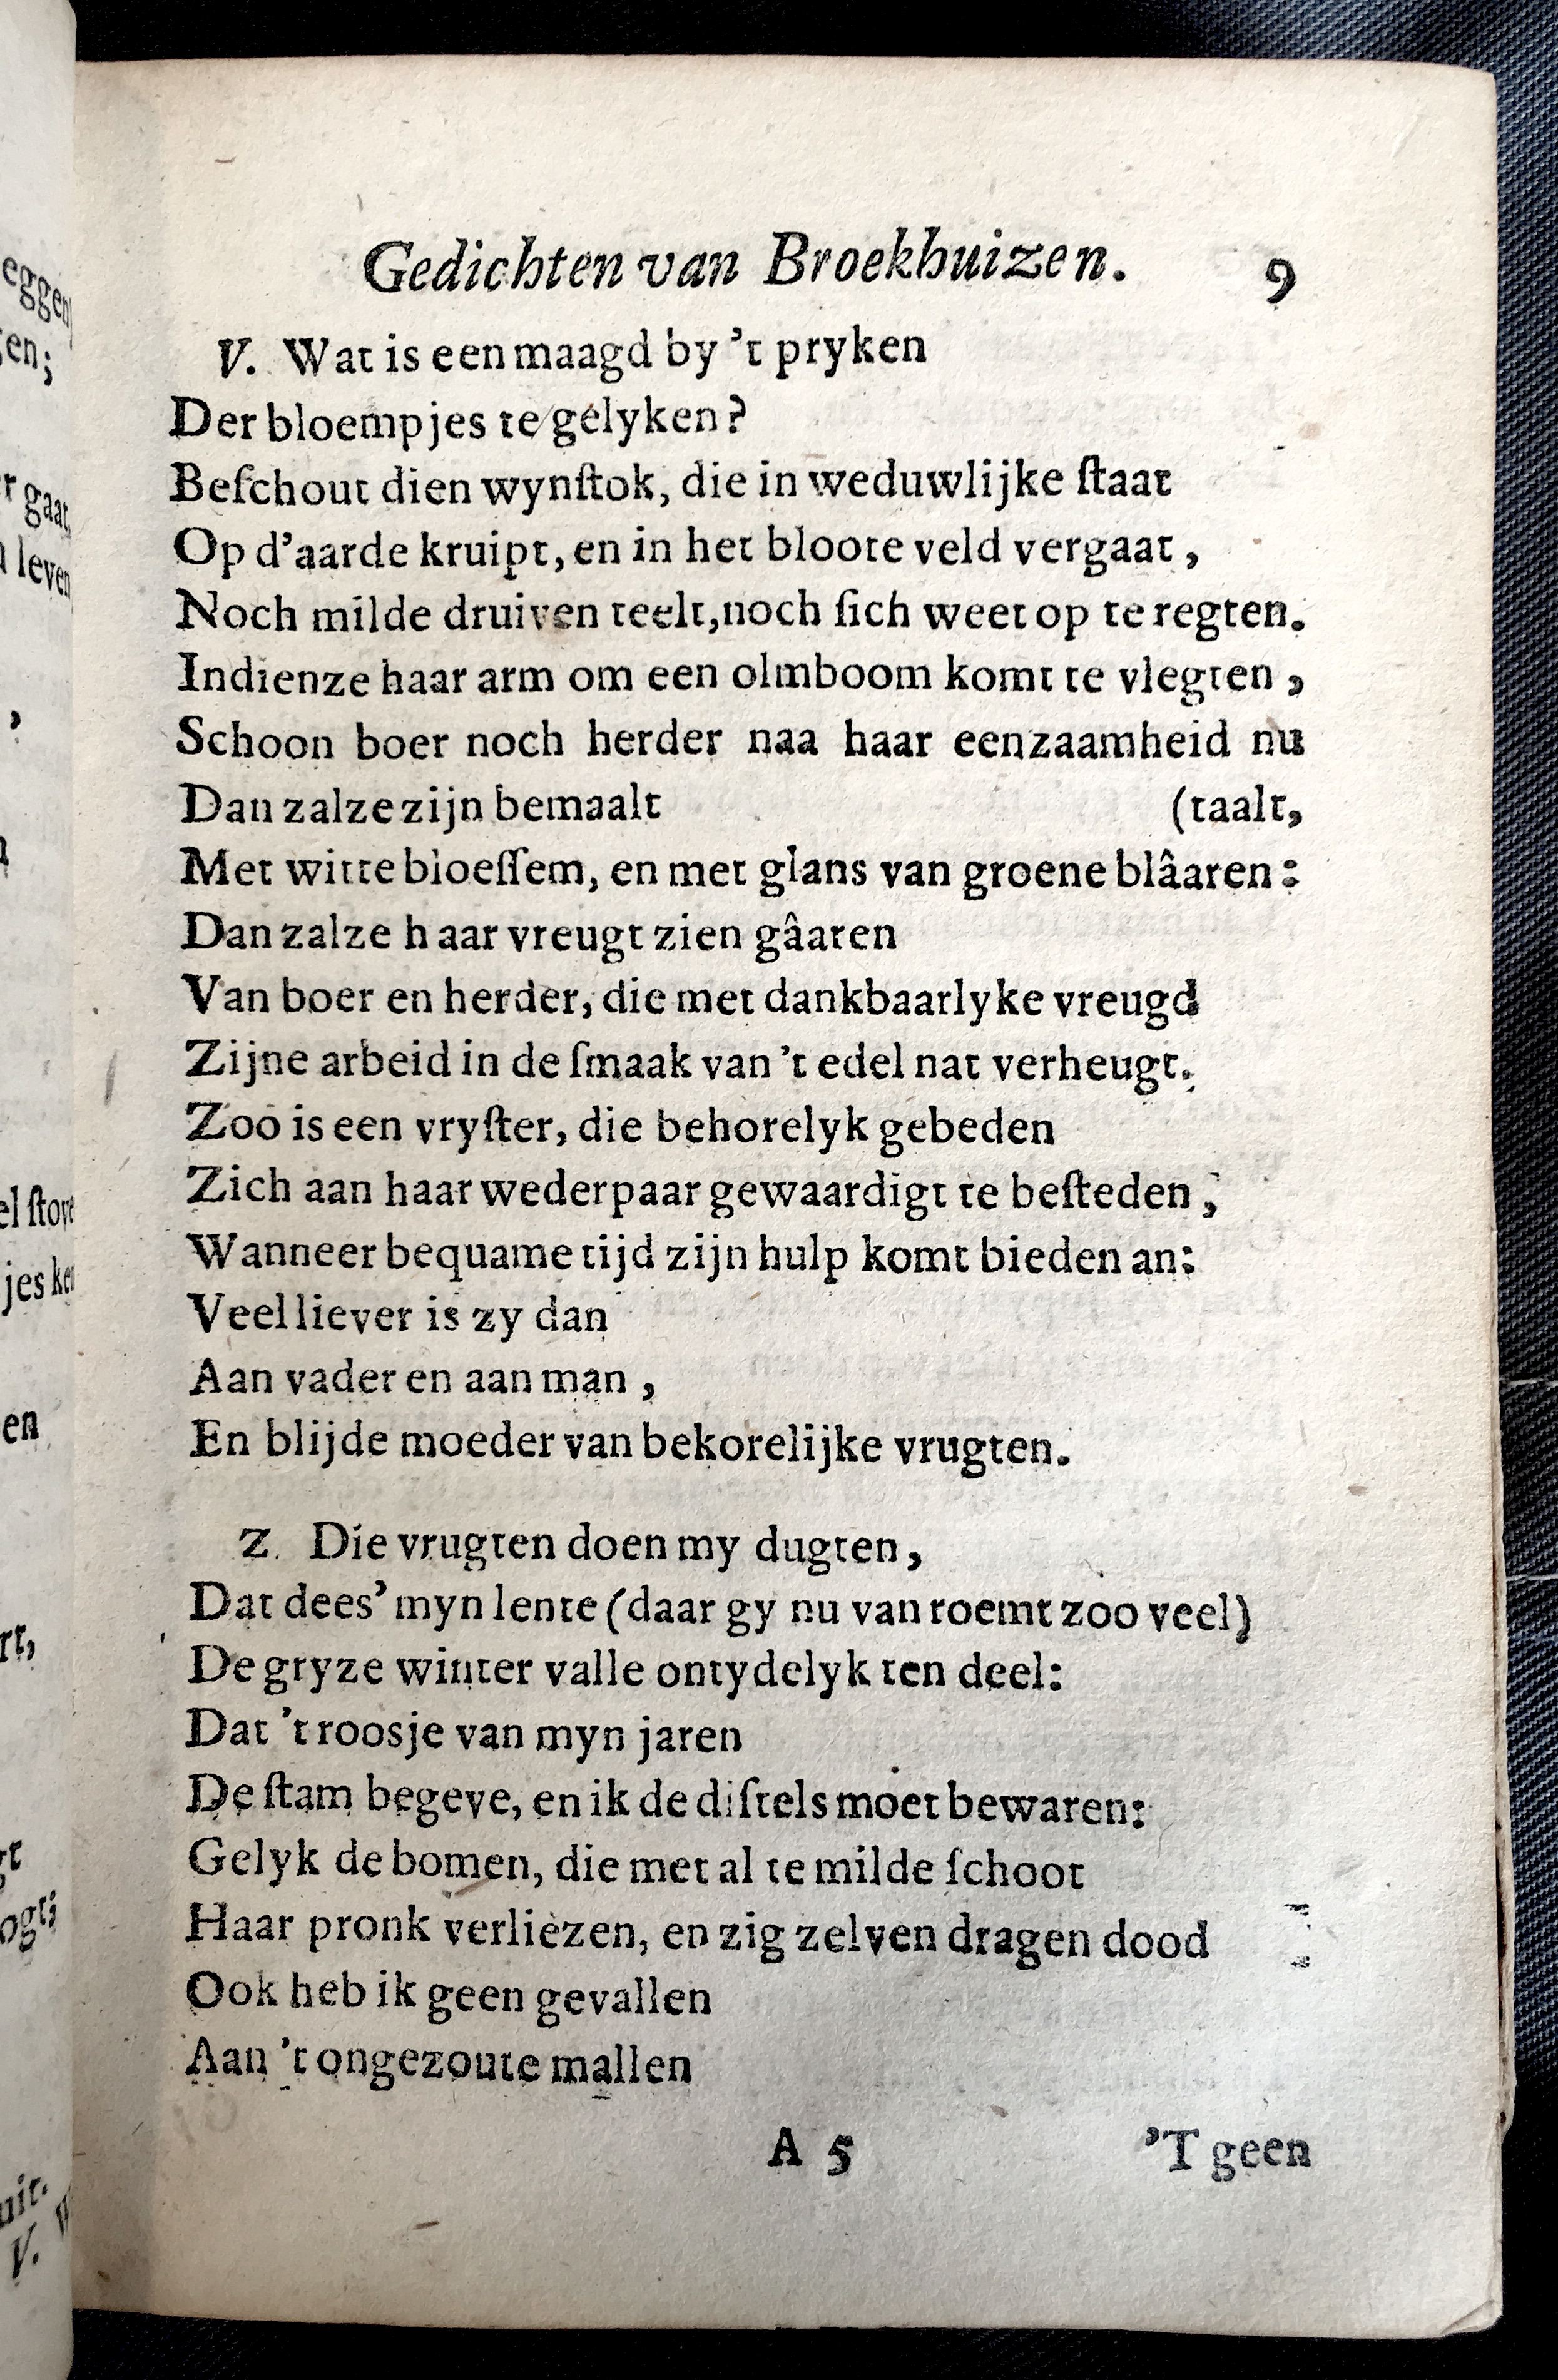 Gedichten van Broekhuizen. 9
V. Wat is een maagd by 't pryken
Der bloempjes te gelyken?
Beſchout dien wynſtok, die in weduwlijke ſtaat
Op d'aarde kruipt, en in het bloote veld vergaat,
Noch milde druiven teelt, noch ſich weet op te regten.
Indienze haar arm om een olmboom komt te vlegten,
Schoon boer noch herder naa haar eenzaamheid nu
Dan zalze zijn bemaalt (taalt,
Met witte bloeſſem, en met glans van groene blâaren:
Dan zalze haar vreugt zien gâaren
Van boer en herder, die met dankbaarlyke vreugd
Zijne arbeid in de ſmaak van 't edel nat verheugt.
Zoo is een vryſter, die behorelyk gebeden
Zich aan haar wederpaar gewaardigt te beſteden,
Wanneer bequame tijd zijn hulp komt bieden an:
Veel liever is zy dan
Aan vader en aan man,
En blijde moeder van bekorelijke vrugten.
Z. Die vrugten doen my dugten,
Dat dees' myn lente (daar gy nu van roemt zoo veel)
De gryze winter valle ontydelyk ten deel:
Dat 't roosje van myn jaren
De ſtam begeve, en ik de diſtels moet bewaren:
Gelyk de bomen, die met al te milde ſchoot
Haar pronk verliezen, en zig zelven dragen dood
Ook heb ik geen gevallen
Aan 't ongezoute mallen
A 5 'T geen